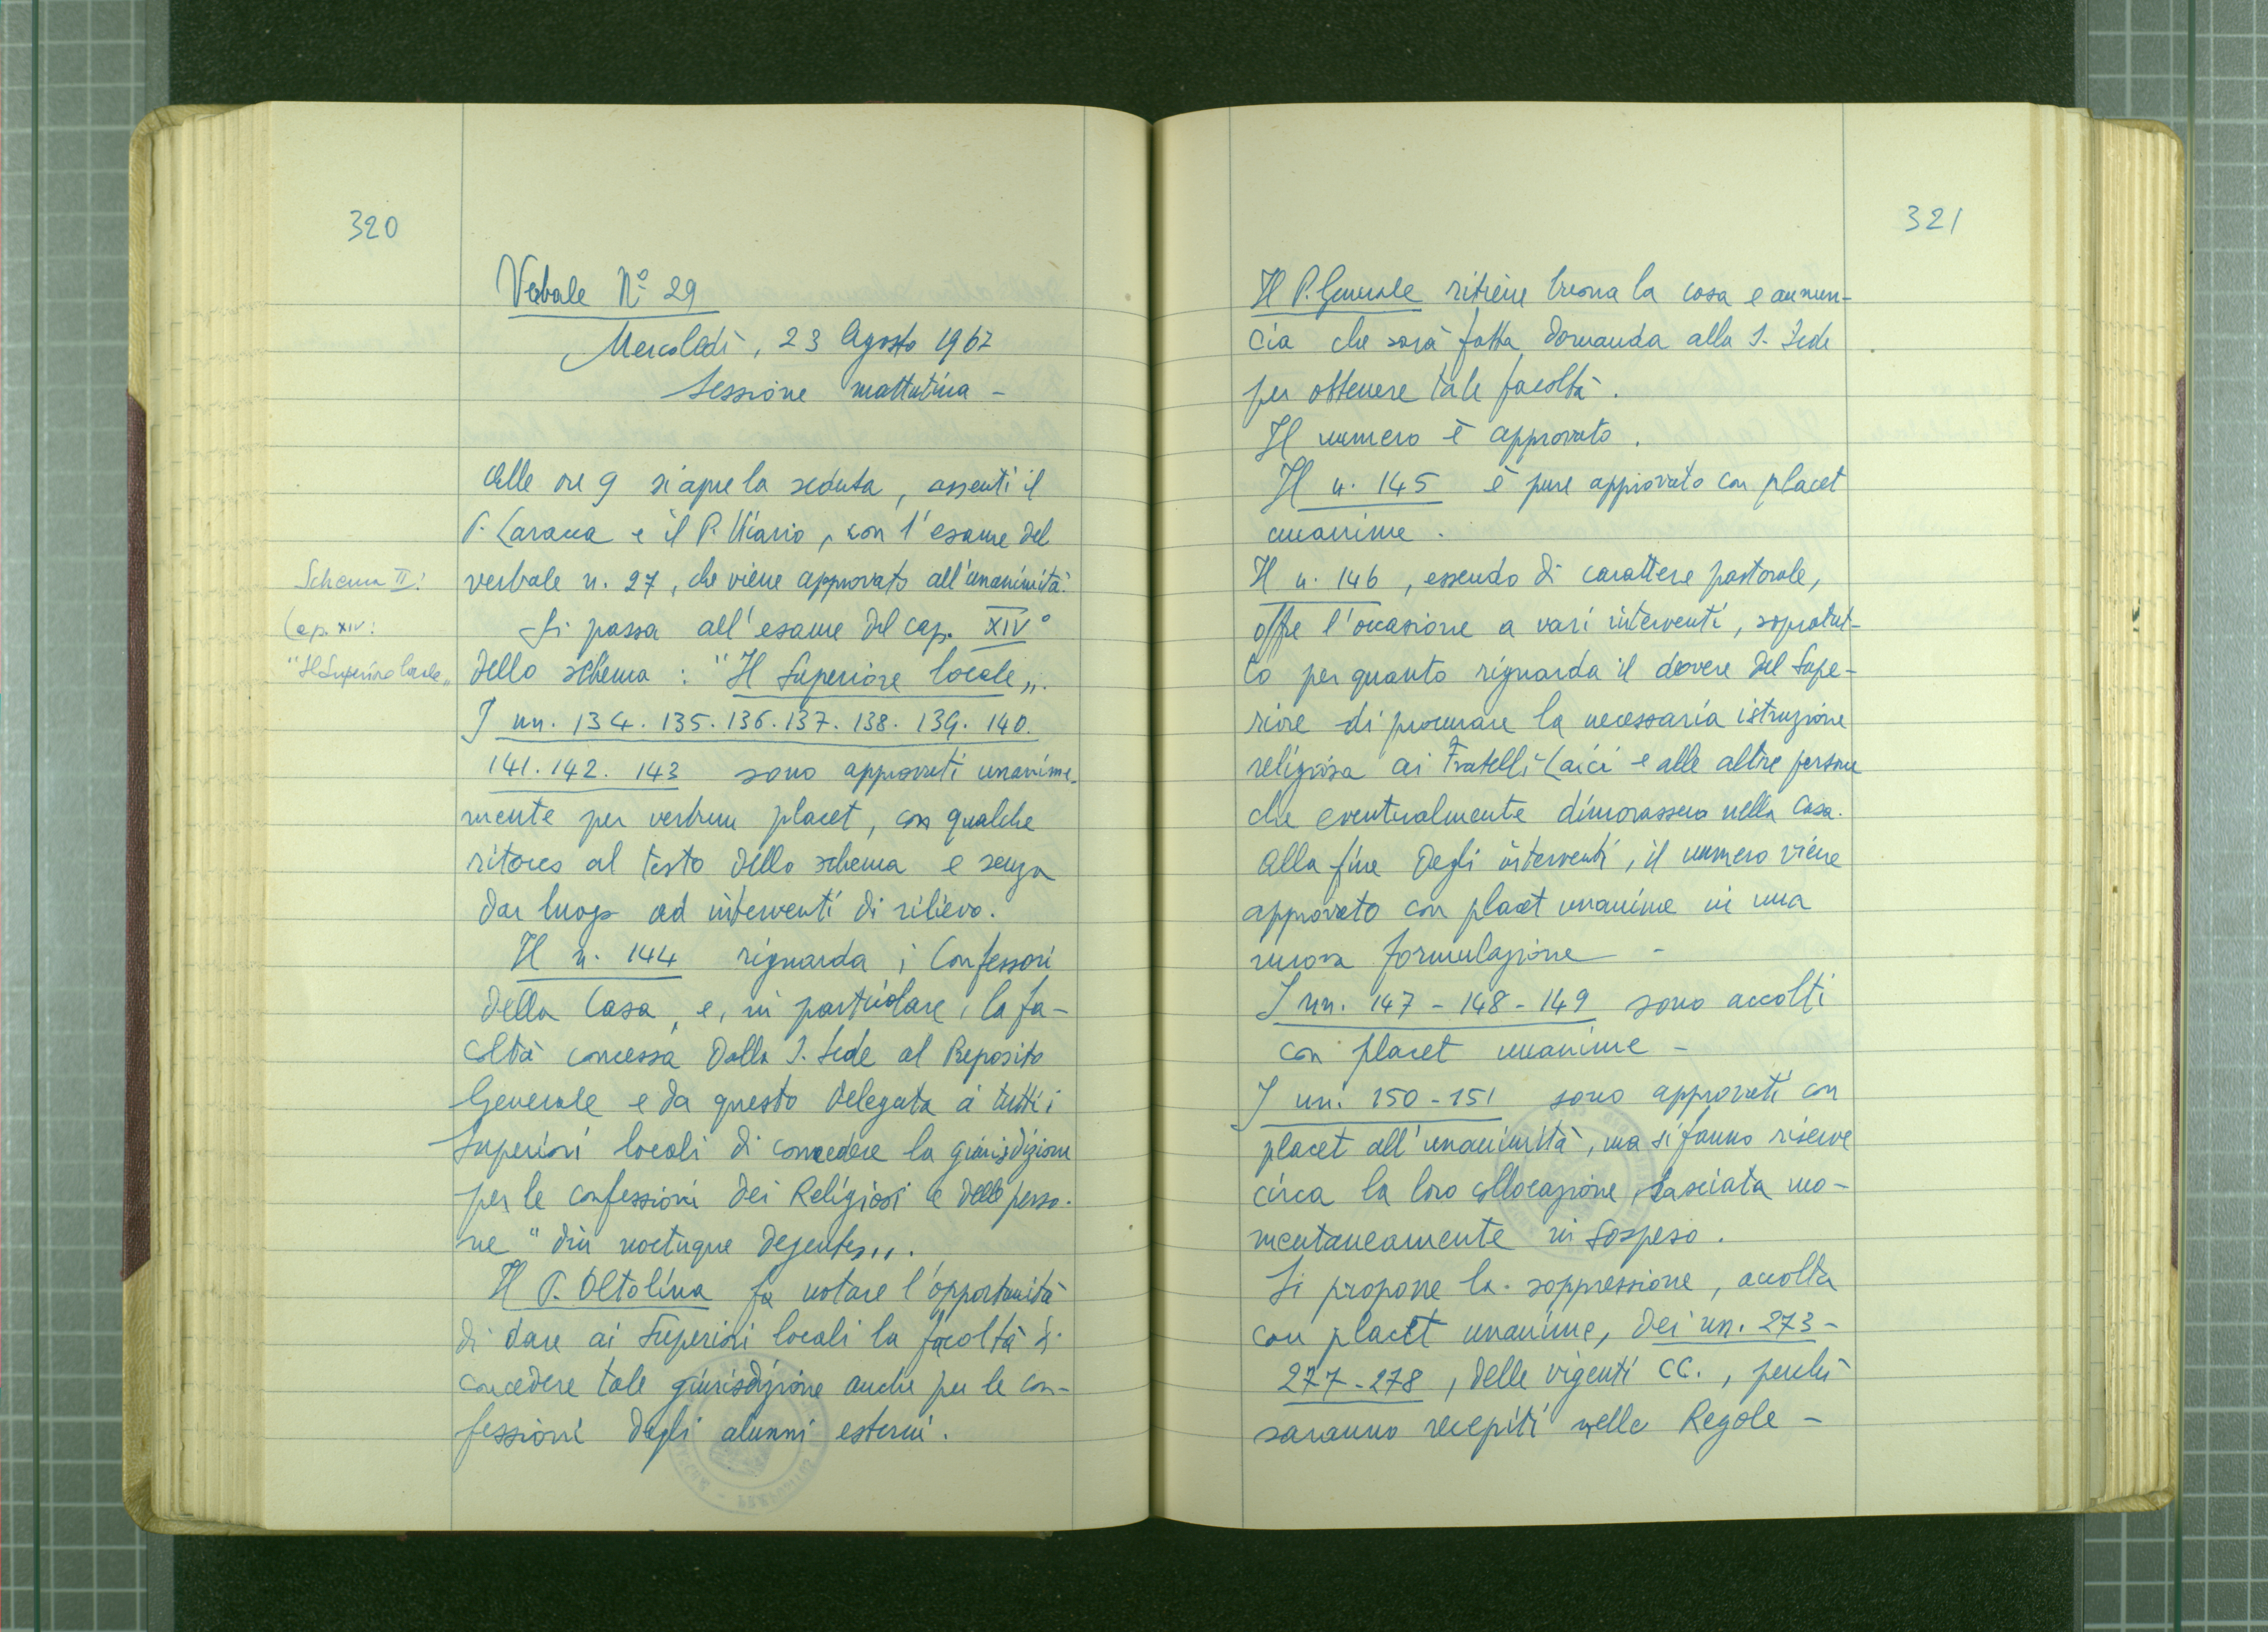 320
Verbale N° 29
Mercoledì, 23 Agosto 1967
Sessione mattutina -
Alle ore 9 si apre la seduta, assenti il
P. Caraca e il P. Vicario, con l'esame del
Schema II:
verbale n. 27, che viene approvato all'unanimità.
Cap. XIV:
Si passa all'esame del cap. XIV°
"Il Superiore locale„
dello schema : "Il Superiore locale„.
I nn. 134. 135. 136. 137. 138. 139. 140.
141. 142. 143 sono approvati unanime-
mente per verbum placet, con qualche
ritocco al testo dello schema e senza
dar luogo ad interventi di rilievo.
Il n. 144 riguarda i Confessori
della Casa, e, in particolare, la fa-
coltà concessa dalla S. Sede al Preposito
Generale e da questo delegata a tutti i
Superiori locali di concedere la giurisdizione
per le confessioni dei Religiosi e delle perso-
ne "diu noctuque degentes„.
Il P. Oltolina fa notare l'opportunità
di dare ai Superiori locali la facoltà di
concedere tale giurisdizione anche per le con-
fessioni degli alunni esterni.
321
Il P. Generale ritiene buona la cosa e annun-
cia che sarà fatta domanda alla S. Sede
per ottenere tale facoltà.
Il numero è approvato.
Il n. 145 è pure approvato con placet
unanime.
Il n. 146, essendo di carattere pastorale,
offre l'occasione a vari interventi, sopratut-
to per quanto riguarda il dovere del Supe-
riore di procurare la necessaria istruzione
religiosa ai Fratelli Laici e alle altre persone
che eventualmente dimorassero nella Casa.
Alla fine degli interventi, il numero viene
approvato con placet unanime in una
nuova formulazione -
I nn. 147 - 148 - 149 sono accolti
con placet unanime -
I nn. 150 - 151 sono approvati con
placet all'unanimità, ma si fanno riserve
circa la loro collocazione, lasciata mo-
mentaneamente in sospeso.
Si propone la soppressione, accolta
con placet unanime, dei nn. 273 -
277 - 278, delle vigenti CC., perchè
saranno recepiti nelle Regole -